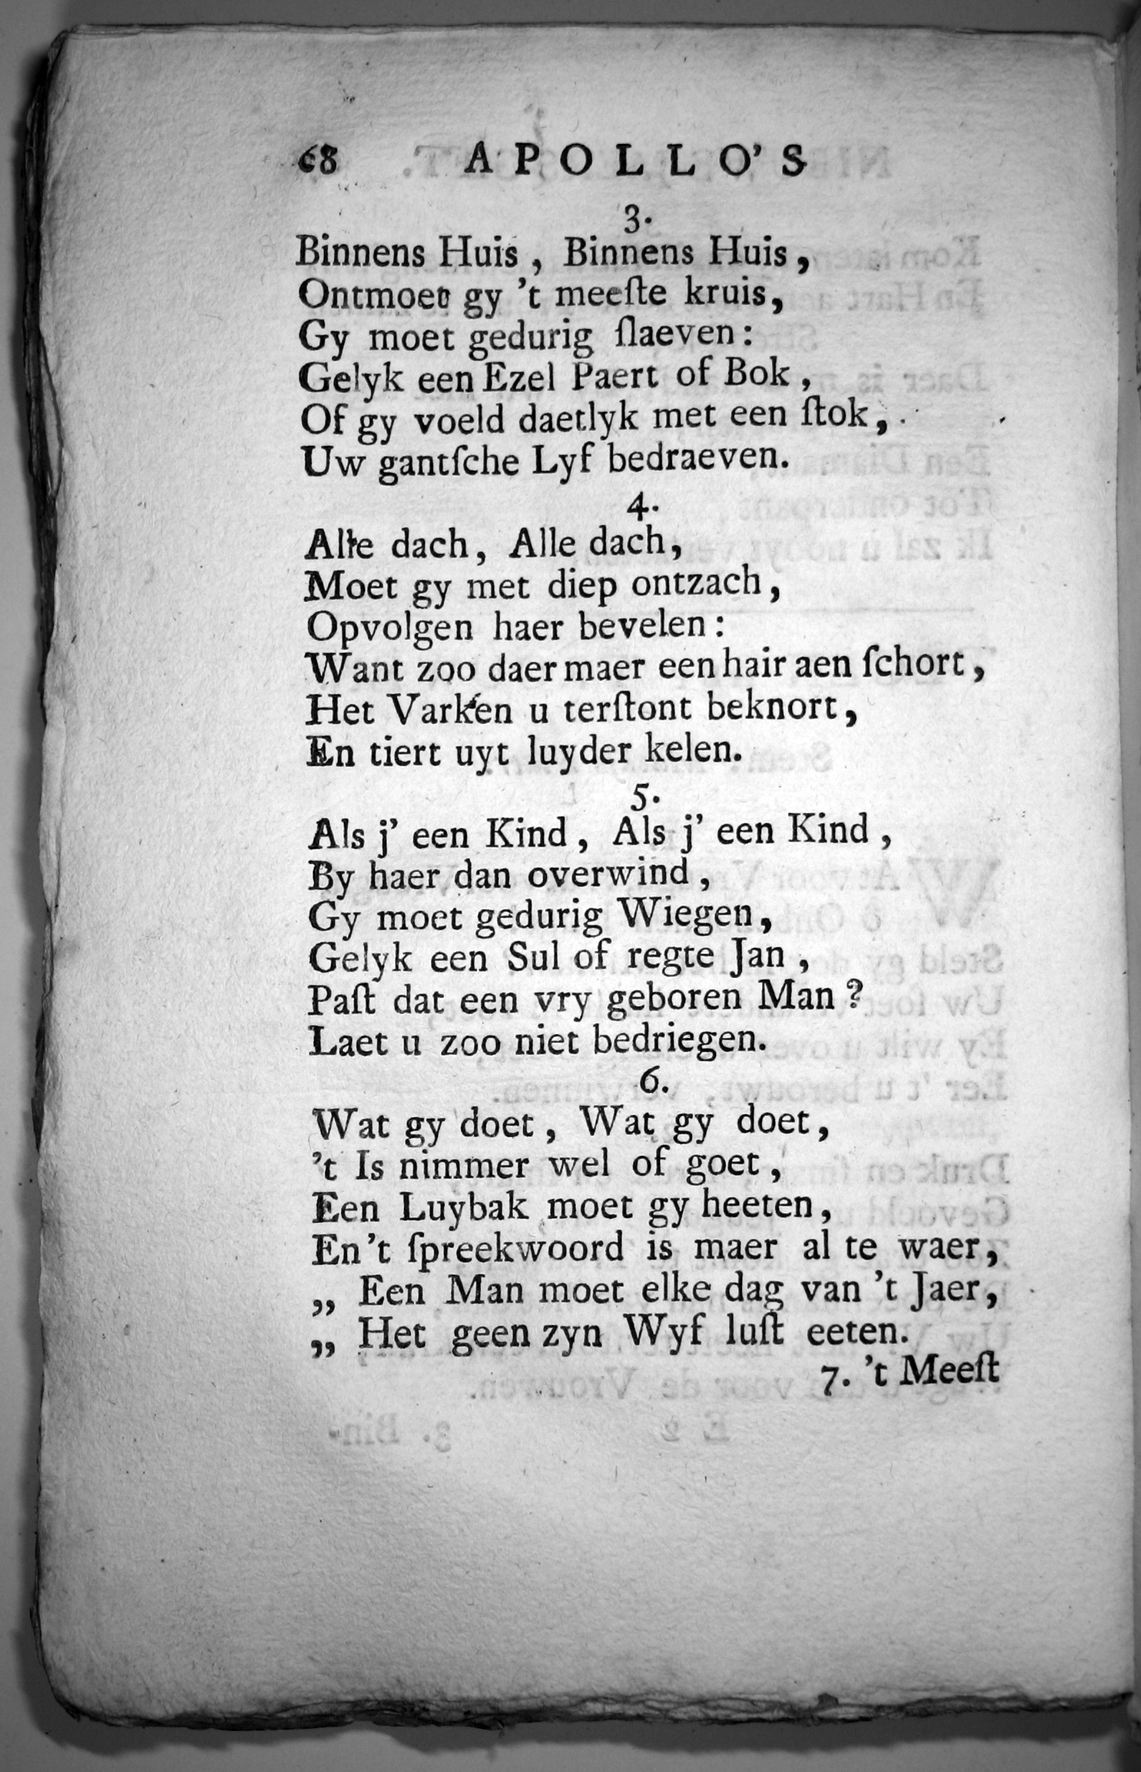 68 APOLLO'S
3.
Binnens Huis, Binnens Huis,
Ontmoet gy 't meeſte kruis,
Gy moet gedurig ſlaeven:
Gelyk een Ezel Paert of Bok,
Of gy voeld daetlyk met een ſtok,
Uw gantſche Lyf bedraeven.
4.
Alle dach, Alle dach,
Moet gy met diep ontzach,
Opvolgen haer bevelen:
Want zoo daer maer een hair aen ſchort,
Het Varken u terſtont beknort,
En tiert uyt luyder kelen.
5.
Als j' een Kind, Als j' een Kind,
By haer dan overwind,
Gy moet gedurig Wiegen,
Gelyk een Sul of regte Jan,
Paſt dat een vry geboren Man?
Laet u zoo niet bedriegen.
6.
Wat gy doet, Wat gy doet,
't Is nimmer wel of goet,
Een Luybak moet gy heeten,
En 't ſpreekwoord is maer al te waer,
„ Een Man moet elke dag van 't Jaer,
„ Het geen zyn Wyf luſt eeten.
7. 't Meeſt